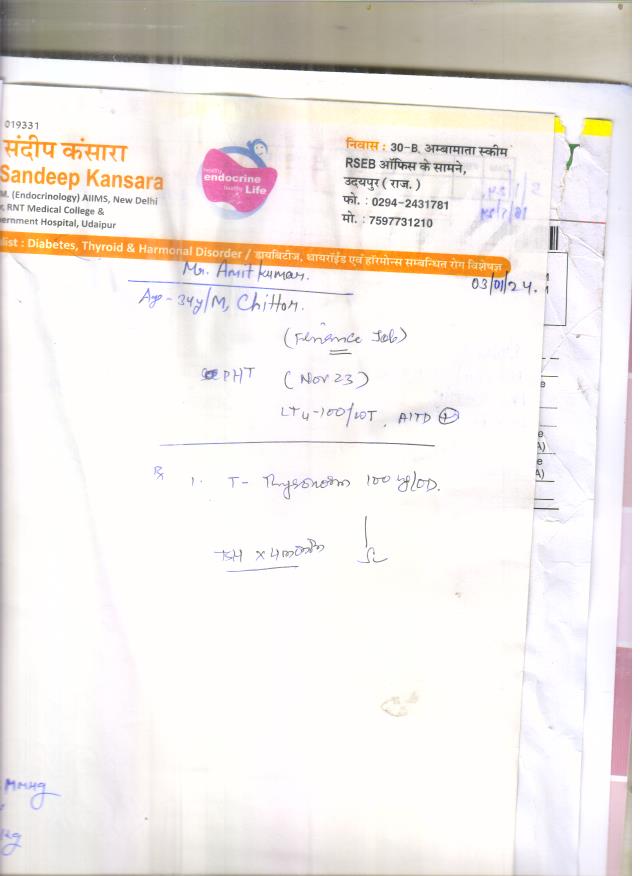 019331
संदीप कंसारा
Sandeep Kansara
M. (Endocrinology) AIIMS, New Delhi
RNT Medical College &
ernment Hospital, Udaipur
healthy
endocrine
healthy Life
निवास : 30-B, अम्बामाता स्कीम
RSEB ऑफिस के सामने,
उदयपुर ( राज. )
फो. : 0294-2431781
मो. : 7597731210
alist : Diabetes, Thyroid & Harmonal Disorder / डायबिटीज, थायरॉईड एवं हॉरमोन्स सम्बन्धित रोग विशेषज्ञ
Mr. Amit Kumar.
03/01/24.
Age - 34y/M, Chittor.
(Finance Job)
PHT (Nov 23)
LT4-100/WT, AITD +
Rx 1. T- Thyronorm 100 ug/OD.
TSH x 4 month
MMHg
Kg